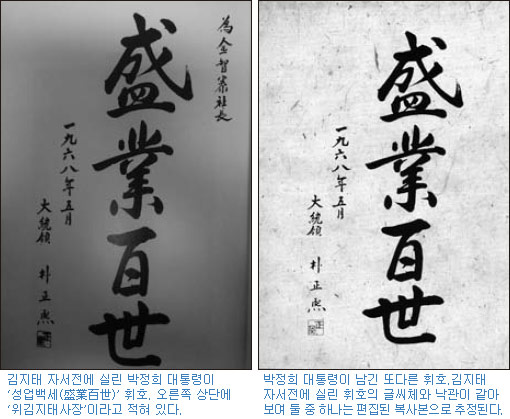 為金智泰社長
盛業百世
一九六八年五月
大統領 朴正熙
김지태 자서전에 실린 박정희 대통령이
‘성업백세(盛業百世)’ 휘호. 오른쪽 상단에
‘위김지태사장’이라고 적혀 있다.
盛業百世
一九六八年五月
大統領 朴正熙
박정희 대통령이 남긴 또다른 휘호.김지태
자서전에 실린 휘호의 글씨체와 낙관이 같아
보여 둘 중 하나는 편집된 복사본으로 추정된다.